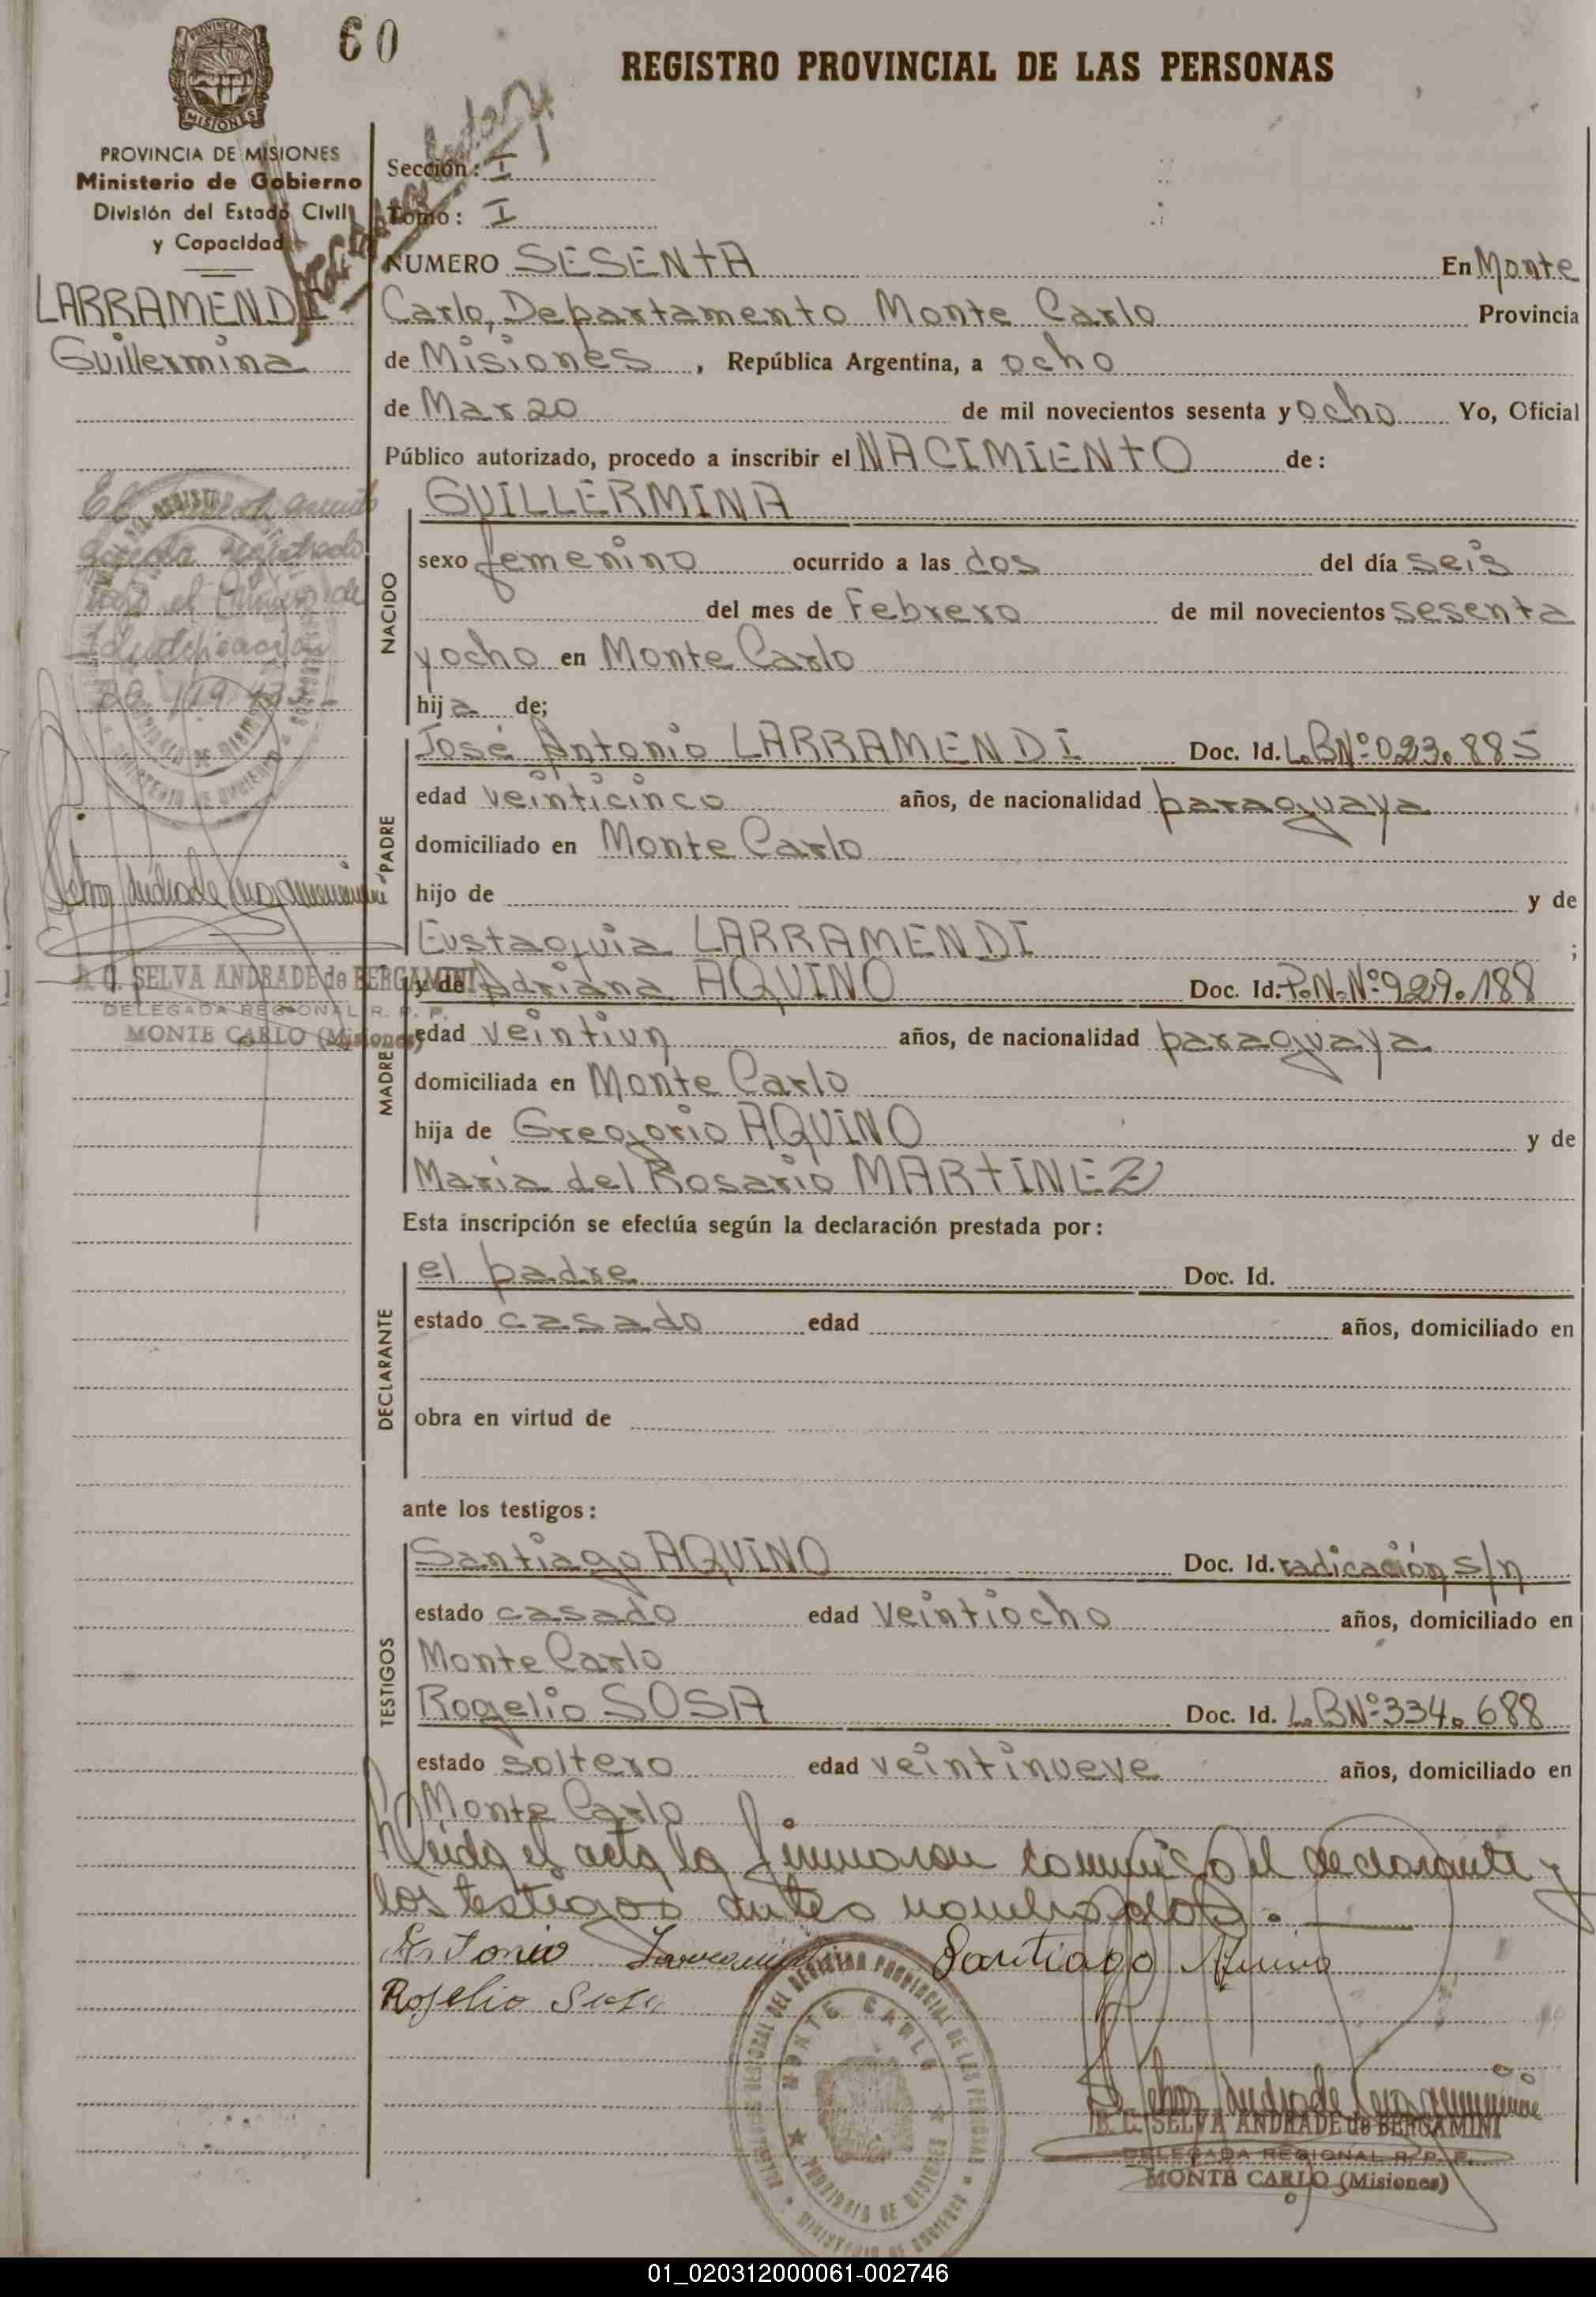 60
REGISTRO PROVINCIAL DE LAS PERSONAS
MISIONES
PROVINCIA DE MISIONES
Ministerio de Gobierno
División del Estado Civil
y Capacidad
LARRAMENDI
Guillermina
Sección: I
Tomo: I
NUMERO SESENTA En Monte
Carlo, Departamento Monte Carlo Provincia
de Misiones, República Argentina, a ocho
de Marzo de mil novecientos sesenta y ocho Yo, Oficial
Público autorizado, procedo a inscribir el NACIMIENTO de:
NACIDO
GUILLERMINA
sexo femenino ocurrido a las dos del día seis
del mes de Febrero de mil novecientos sesenta
y ocho en Monte Carlo
hija de;
PADRE
José Antonio LARRAMENDI Doc. Id. L.B Nº 023.885
edad veinticinco años, de nacionalidad paraguaya
domiciliado en Monte Carlo
hijo de y de
Eustaquia LARRAMENDI ;
MADRE
y de Adriana AQUINO Doc. Id. P.N. Nº 929.188
edad veintiun años, de nacionalidad paraguaya
domiciliada en Monte Carlo
hija de Gregorio AQUINO y de
María del Rosario MARTINEZ
Esta inscripción se efectúa según la declaración prestada por:
DECLARANTE
el padre Doc. Id.
estado casado edad años, domiciliado en
obra en virtud de
ante los testigos:
TESTIGOS
Santiago AQUINO Doc. Id. radicación s/n
estado casado edad veintiocho años, domiciliado en
Monte Carlo
Rogelio SOSA Doc. Id. L.B Nº 334.688
estado soltero edad veintinueve años, domiciliado en
Monte Carlo
Leida el acta la firmaron conmigo el declarante y
los testigos antes nombrados.
Antonio Santiago Aquino
Rogelio Sosa
registrado
bajo el Número de
Identificación
B. C. SELVA ANDRADE de BERGAMINI
DELEGADA REGIONAL R. P. P.
MONTE CARLO (Misiones)
MONTE CARLO
PROVINCIA DE MISIONES
B. C. SELVA ANDRADE de BERGAMINI
DELEGADA REGIONAL R. P. P.
MONTE CARLO (Misiones)
01_020312000061-002746